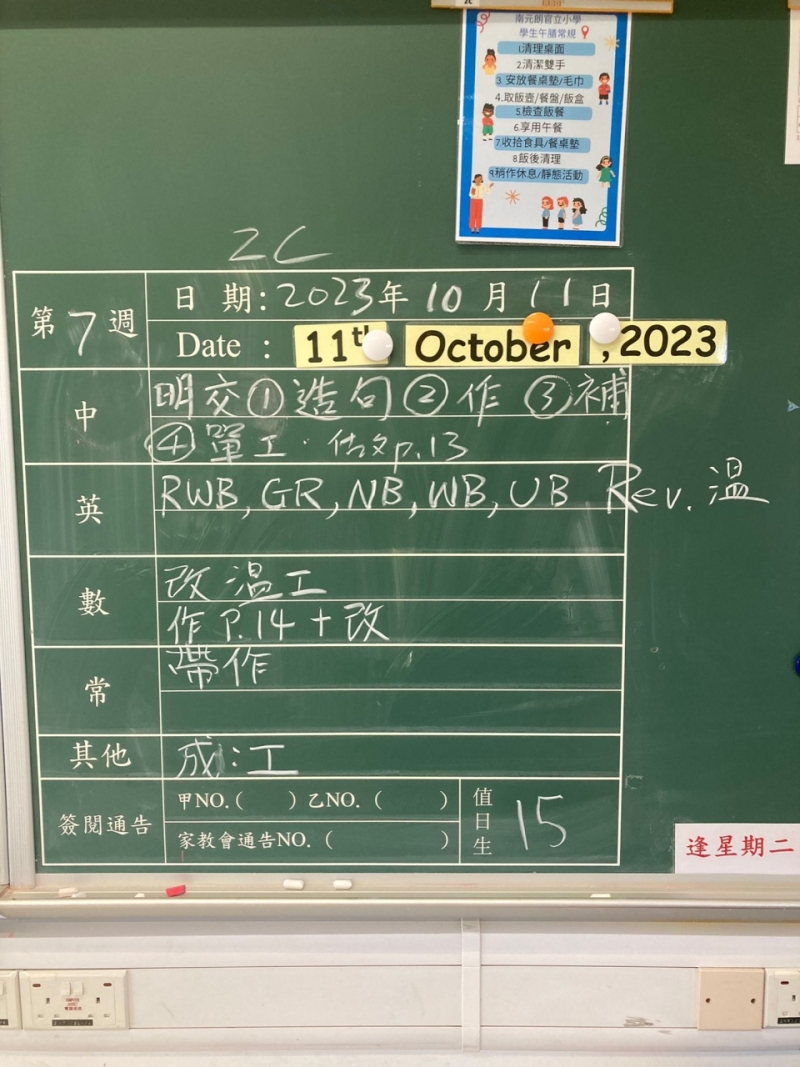 南元朗官立小學
學生午膳常規
1.清理桌面
2.清潔雙手
3.安放餐桌墊/毛巾
4.取飯壺/餐盤/飯盒
5.檢查飯餐
6.享用午餐
7.收拾食具/餐桌墊
8.飯後清理
9.稍作休息/靜態活動
2C
第7週
日期:2023年10月11日
Date : 11th October, 2023
中
明交①造句②作 ③補
④單工. 估文p.13
英
RWB, GR, NB, WB, UB Rev. 溫
數
改溫工
作P.14+改
常
帶作
其他
成:工
簽閱通告
甲NO.( ) 乙NO. ( )
家教會通告NO. ( )
值日生 15
逢星期二